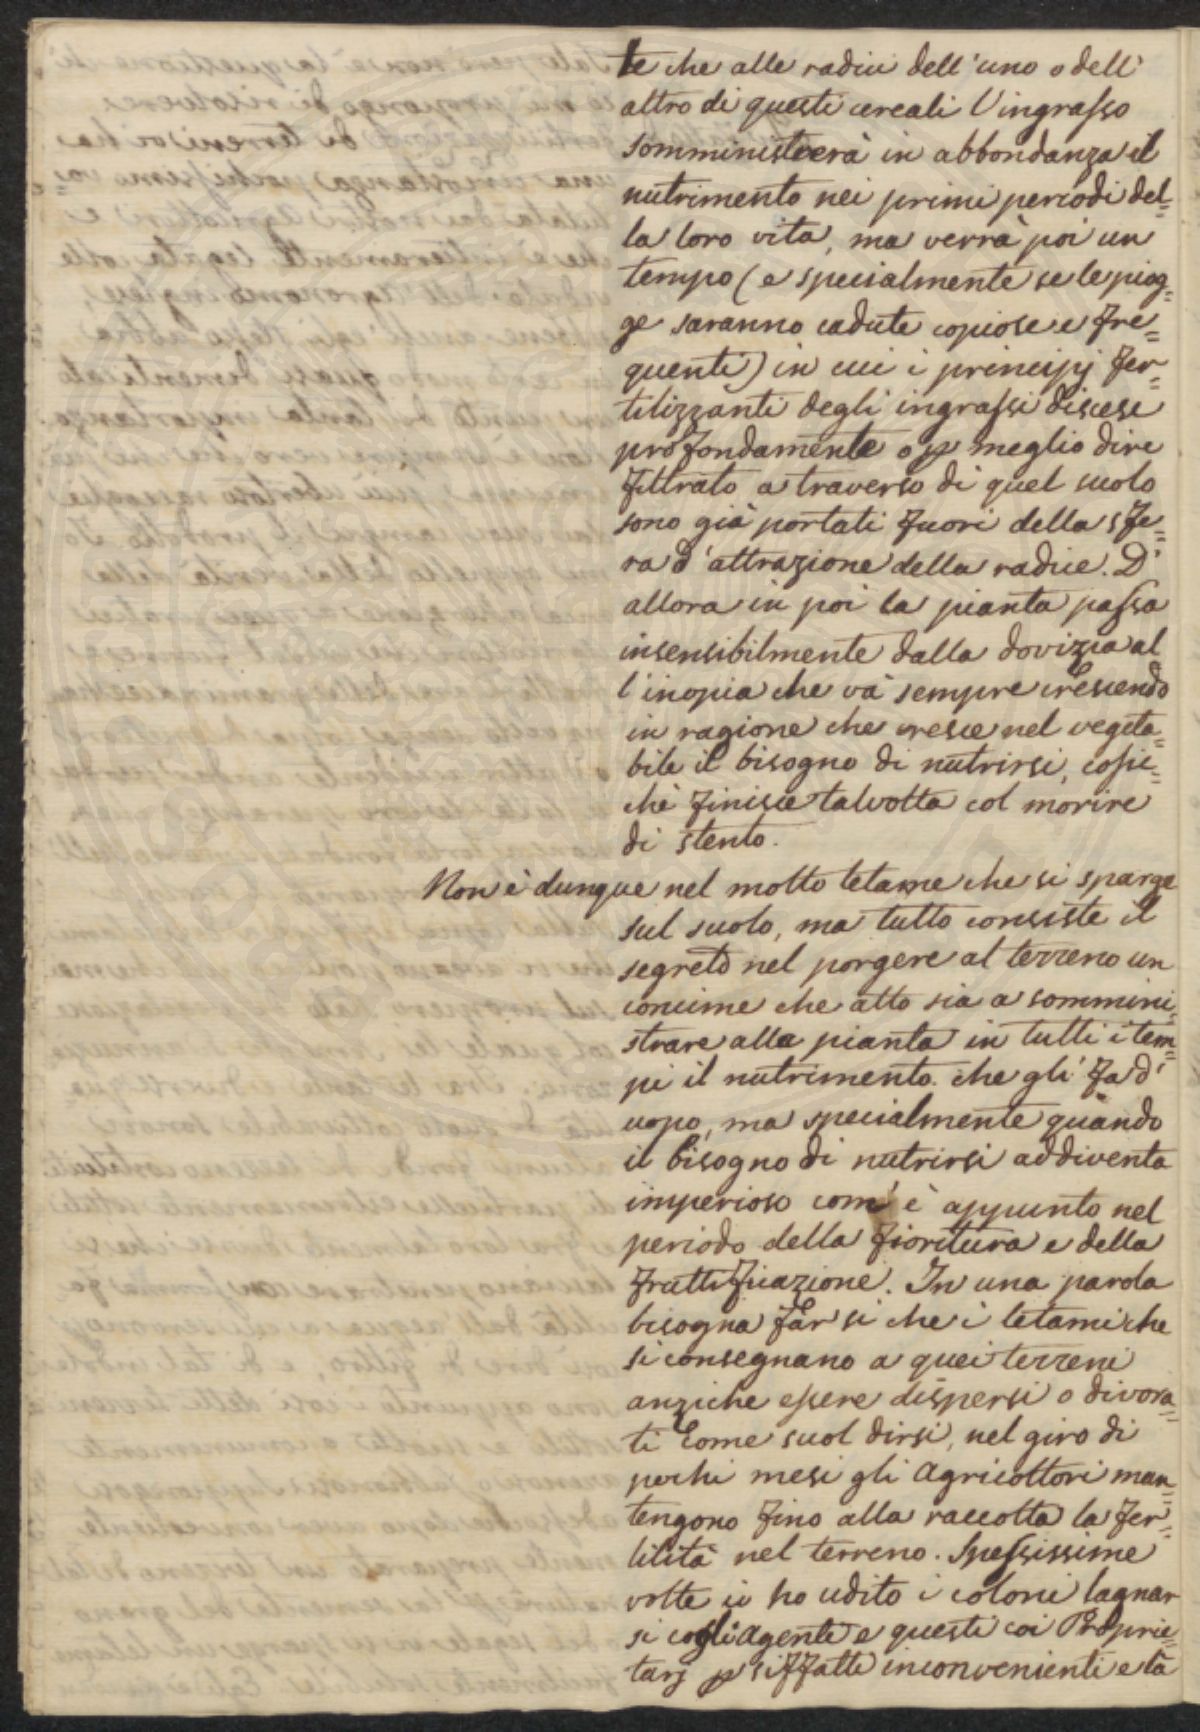 te che alle radici dell'uno o dell'
altro di questi cereali l'ingrasso
somministrerà in abbondanza il
nutrimento nei primi periodi del=
la loro vita, ma verrà poi un
tempo (e specialmente se le piog=
ge saranno cadute copiose e fre=
quenti) in cui i principj fer=
tilizzanti degli ingrassi discesi
profondamente o p meglio dire
filtrato a traverso di quel suolo
sono già portati fuori della sfe=
ra d'attrazione della radice. D'
allora in poi la pianta passa
insensibilmente dalla dovizia al
l'inopia che và sempre crescendo
in ragione che cresce nel vegeta=
bile il bisogno di nutrirsi, cosic=
chè finisce talvolta col morire
di stento.
Non è dunque nel molto letame che si sparge
sul suolo, ma tutto consiste il
segreto nel porgere al terreno un
concime che atto sia a sommini=
strare alla pianta in tutti i tem=
pi il nutrimento che gli fa d'
uopo, ma specialmente quando
il bisogno di nutrirsi addiventa
imperioso com'è appunto nel
periodo della fioritura e della
fruttificazione. In una parola
bisogna far si che i letami che
si consegnano a quei terreni
anziche essere dispersi o divora=
ti come suol dirsi, nel giro di
pochi mesi gli Agricoltori man=
tengono fino alla raccolta la fer=
tilità nel terreno. Spessissime
volte io ho udito i coloni lagnar
si cogli agenti e questi coi Proprie=
tarj p siffatti inconvenienti e la